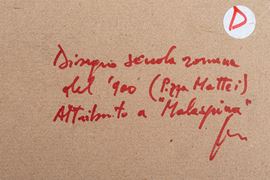 D
Disegno scuola romana
del '900 (P.zza Mattei)
Attribuito a "Malaspina"